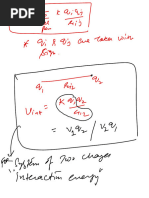 K q1 q2
r12
K q1 & q2 are taken with
sign
q1 r12 q2
Uint = K q1 q2
r12
= V2 q2 / V2 q1
for
"System of two charges
Interaction energy"